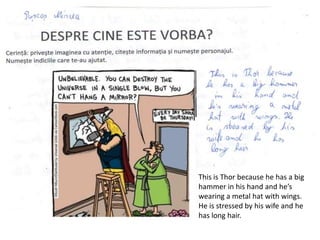 DESPRE CINE ESTE VORBA?
Cerință: privește imaginea cu atenție, citește informația și numește personajul.
Numește indiciile care te-au ajutat.
UNBELIEVABLE. YOU CAN DESTROY THE
UNIVERSE IN A SINGLE BLOW, BUT YOU
CAN'T HANG A MIRROR?
EVERY DAY SHOULD
BE THURSDAY!
This is Thor because
he has a big hammer
in his hand and
he's wearing a metal
hat with wings. He
is stressed by his
wife and he has
long hair
This is Thor because he has a big
hammer in his hand and he's
wearing a metal hat with wings.
He is stressed by his wife and he
has long hair.